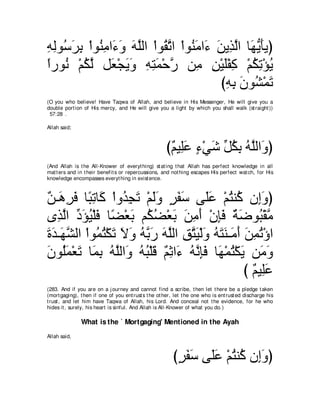 (يأَيُّهَا الَّذِينَ ءَامَنُواْ اتَّقُواْ اللَّهَ وَءَامِنُواْ بِرَسُولِهِ
يُؤْتِكُمْ كِفْلَيْنِ مِن رَّحْمَتِهِ وَيَجْعَل لَّكُمْ نُوراً
تَمْشُونَ بِهِ)
(O you who believe! Have Taqwa of Allah, and believe in His Messenger, He will give you a double portion of His mercy, and He will give you a light by which you shall walk (straight)) 57:28 .
Allah said;
(وَاللَّهُ بِكُلِّ شَيْءٍ عَلِيمٌ)
(And Allah is the All-Knower of everything) stating that Allah has perfect knowledge in all matters and in their benefits or repercussions, and nothing escapes His perfect watch, for His knowledge encompasses everything in existence.
(وَإِن كُنتُمْ عَلَى سَفَرٍ وَلَمْ تَجِدُواْ كَاتِبًا فَرِهَـنٌ
مَّقْبُوضَةٌ فَإِنْ أَمِنَ بَعْضُكُم بَعْضًا فَلْيُؤَدِّ الَّذِى
اؤْتُمِنَ أَمَـنَتَهُ وَلْيَتَّقِ اللَّهَ رَبَّهُ وَلاَ تَكْتُمُواْ الشَّهَـدَةَ
وَمَن يَكْتُمْهَا فَإِنَّهُ ءَاثِمٌ قَلْبُهُ وَاللَّهُ بِمَا تَعْمَلُونَ
عَلِيمٌ )
(283. And if you are on a journey and cannot find a scribe, then let there be a pledge taken (mortgaging), then if one of you entrusts the other, let the one who is entrusted discharge his trust, and let him have Taqwa of Allah, his Lord. And conceal not the evidence, for he who hides it, surely, his heart is sinful. And Allah is All-Knower of what you do.)
What is the `Mortgaging' Mentioned in the Ayah
Allah said,
(وَإِن كُنتُمْ عَلَى سَفَرٍ)